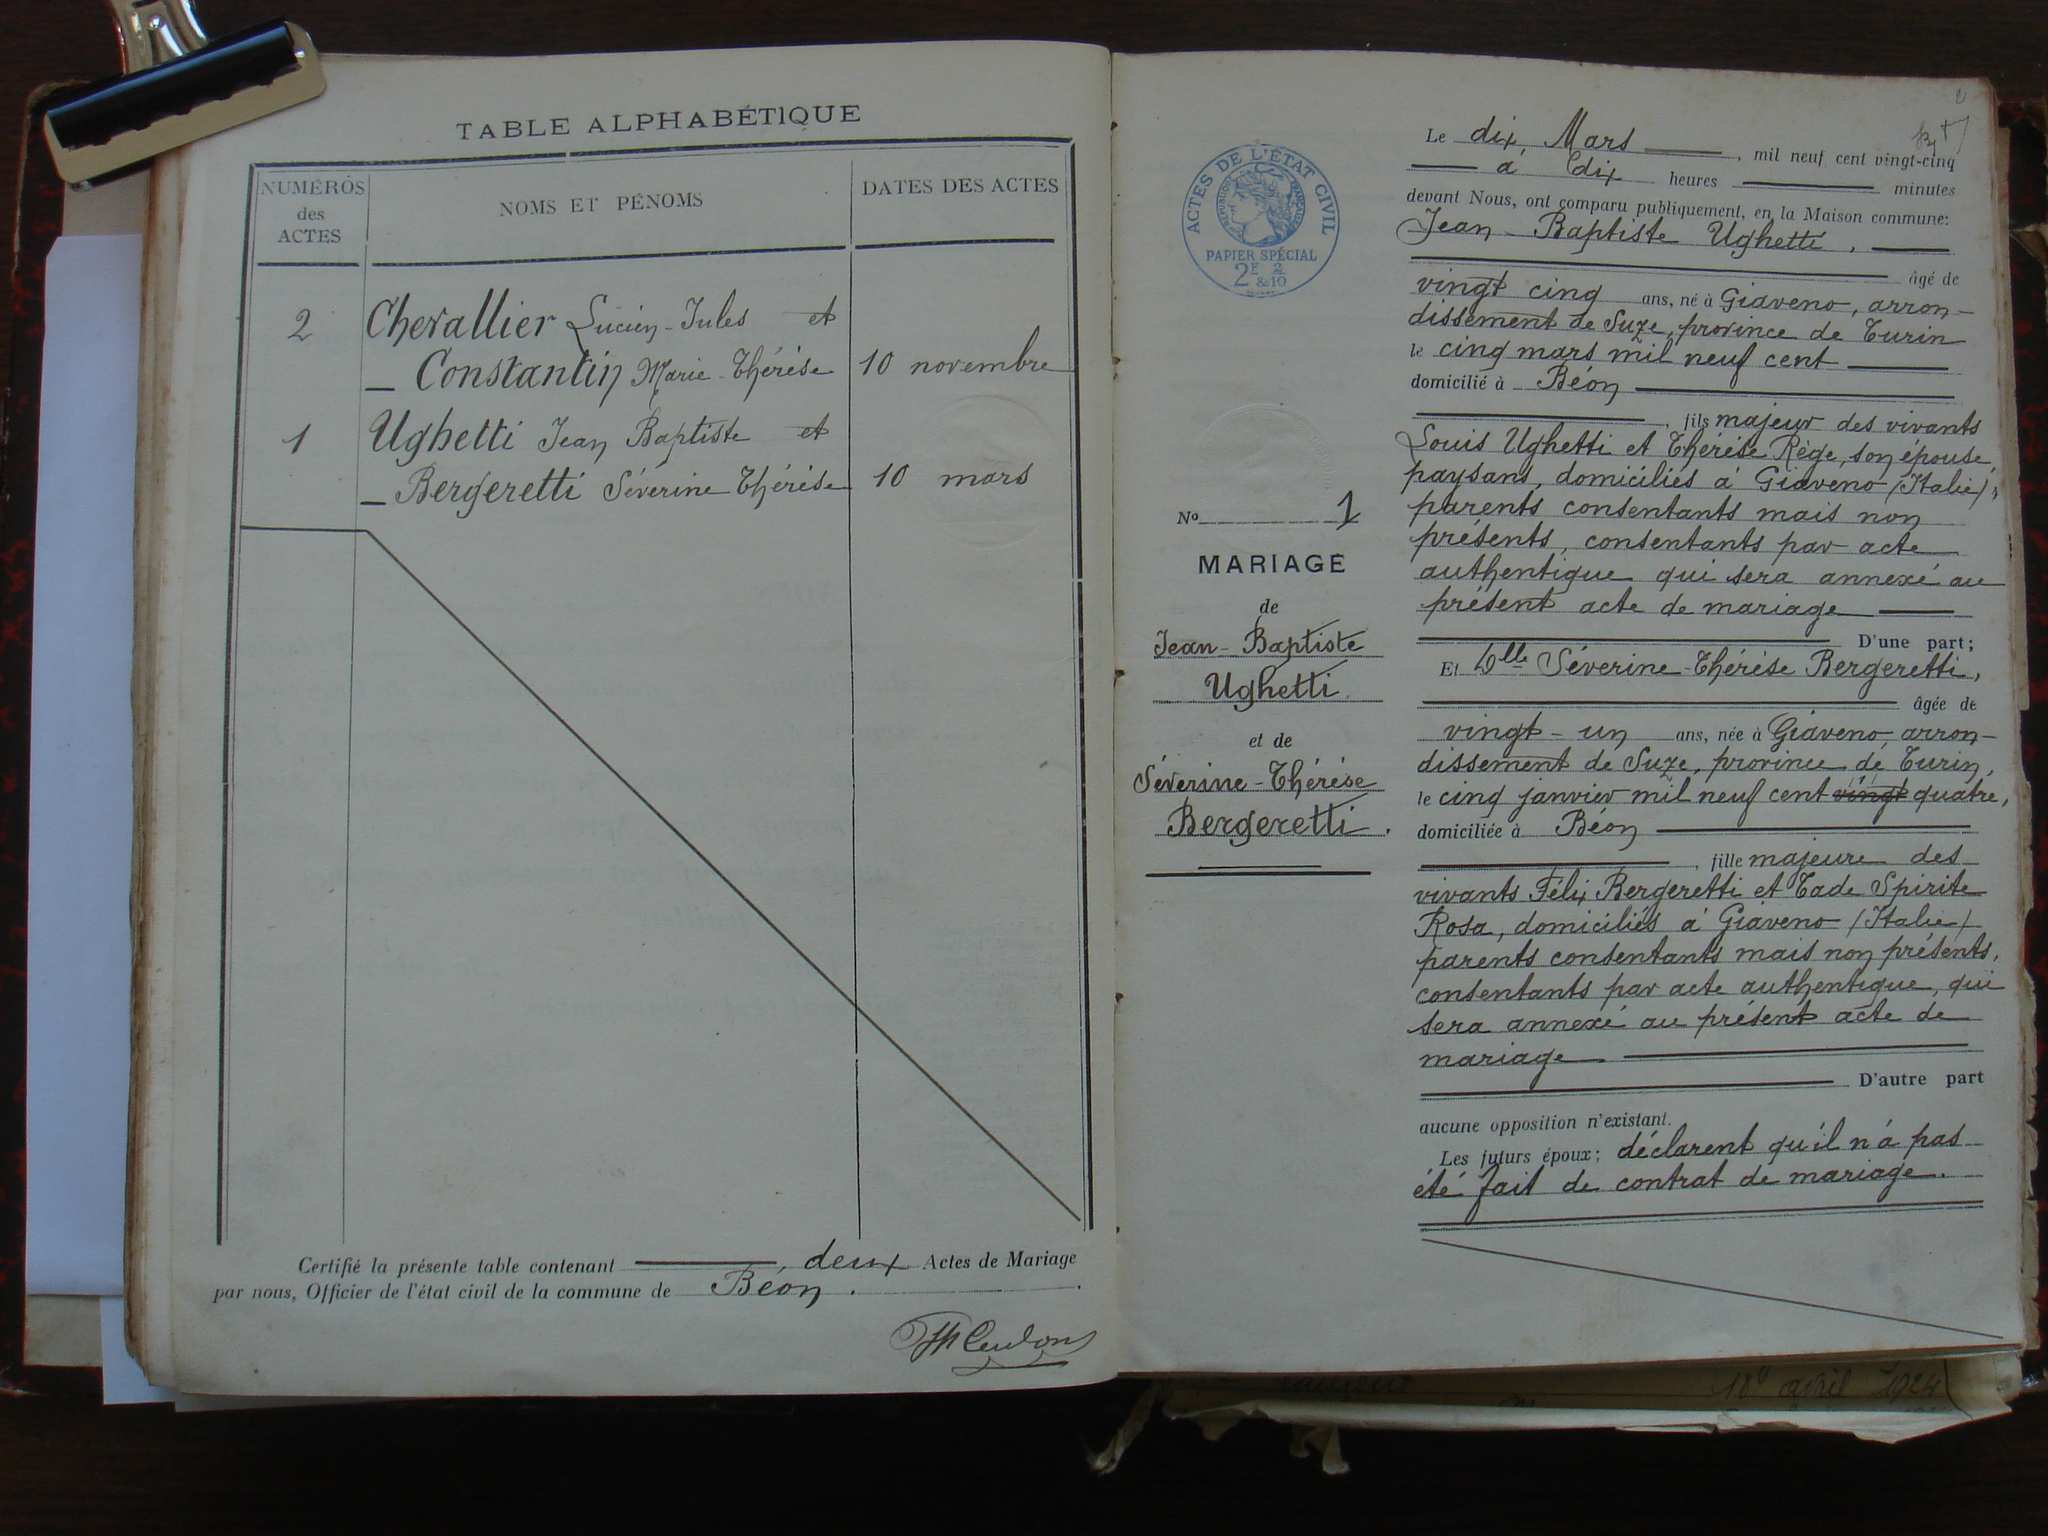 TABLE ALPHABÉTIQUE
NUMÉROS
des
ACTES
NOMS ET PÉNOMS
DATES DES ACTES
2 Chevallier Lucien-Jules et
– Constantin Marie-Thérèse 10 novembre
1 Ughetti Jean Baptiste et
– Bergeretti Séverine Thérèse 10 mars
Certifié la présente table contenant deux Actes de Mariage
par nous, Officier de l'état civil de la commune de Béon.
ACTES DE L'ÉTAT CIVIL
PAPIER SPÉCIAL
2F & 2/10
No 1
MARIAGE
de
Jean-Baptiste
Ughetti
et de
Séverine-Thérèse
Bergeretti.
Le dix Mars, mil neuf cent vingt-cinq
à dix heures minutes
devant Nous, ont comparu publiquement, en la Maison commune:
Jean-Baptiste Ughetti,
âgé de
vingt cinq ans, né à Giaveno, arron-
dissement de Suze, province de Turin
le cinq mars mil neuf cent
domicilié à Béon
, fils majeur des vivants
Louis Ughetti et Thérèse Rège, son épouse,
paysans, domiciliés à Giaveno (Italie),
parents consentants mais non
présents, consentants par acte
authentique qui sera annexé au
présent acte de mariage
D'une part;
Et Dlle Séverine-Thérèse Bergeretti,
âgée de
vingt-un ans, née à Giaveno, arron-
dissement de Suze, province de Turin,
le cinq janvier mil neuf cent vingt quatre,
domiciliée à Béon
, fille majeure des
vivants Félix Bergeretti et Tade Spirite
Rosa, domiciliés à Giaveno (Italie)
parents consentants mais non présents,
consentants par acte authentique, qui
sera annexé au présent acte de
mariage
D'autre part
aucune opposition n'existant.
Les futurs époux; déclarent qu'il n'a pas
été fait de contrat de mariage.
18 avril 1924